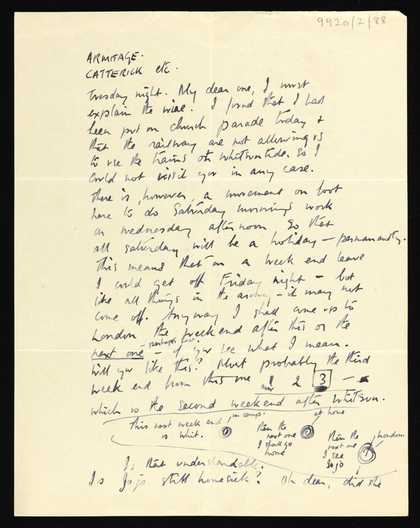 9920/2/88
ARMITAGE.
CATTERICK etc.
Tuesday night. My dear one, I must
explain the wire. I found that I had
been put on church parade today &
that the railway are not allowing us
to use the trains on Whitsuntide. So I
could not visit you in any case.
There is, however, a movement on foot
here to do Saturday mornings work
on Wednesday afternoon so that
all Saturday will be a holiday – permanently.
This means that on a week end leave
I could get off Friday night – but
like all things in the army – it may not
come off. Anyway I shall come up to
London the weekend after this or the
next one – if you see what I mean.
Will you like this? Most probably the third
week end from this one 1 2 3 –
which is the second weekend after Whitsun.
This next week end
is Whit.
Then the
next one
I shall go
home
Then the
next one
I see
Jojo
London
I that understandable.
Is Jojo still homesick? Oh dear, did she